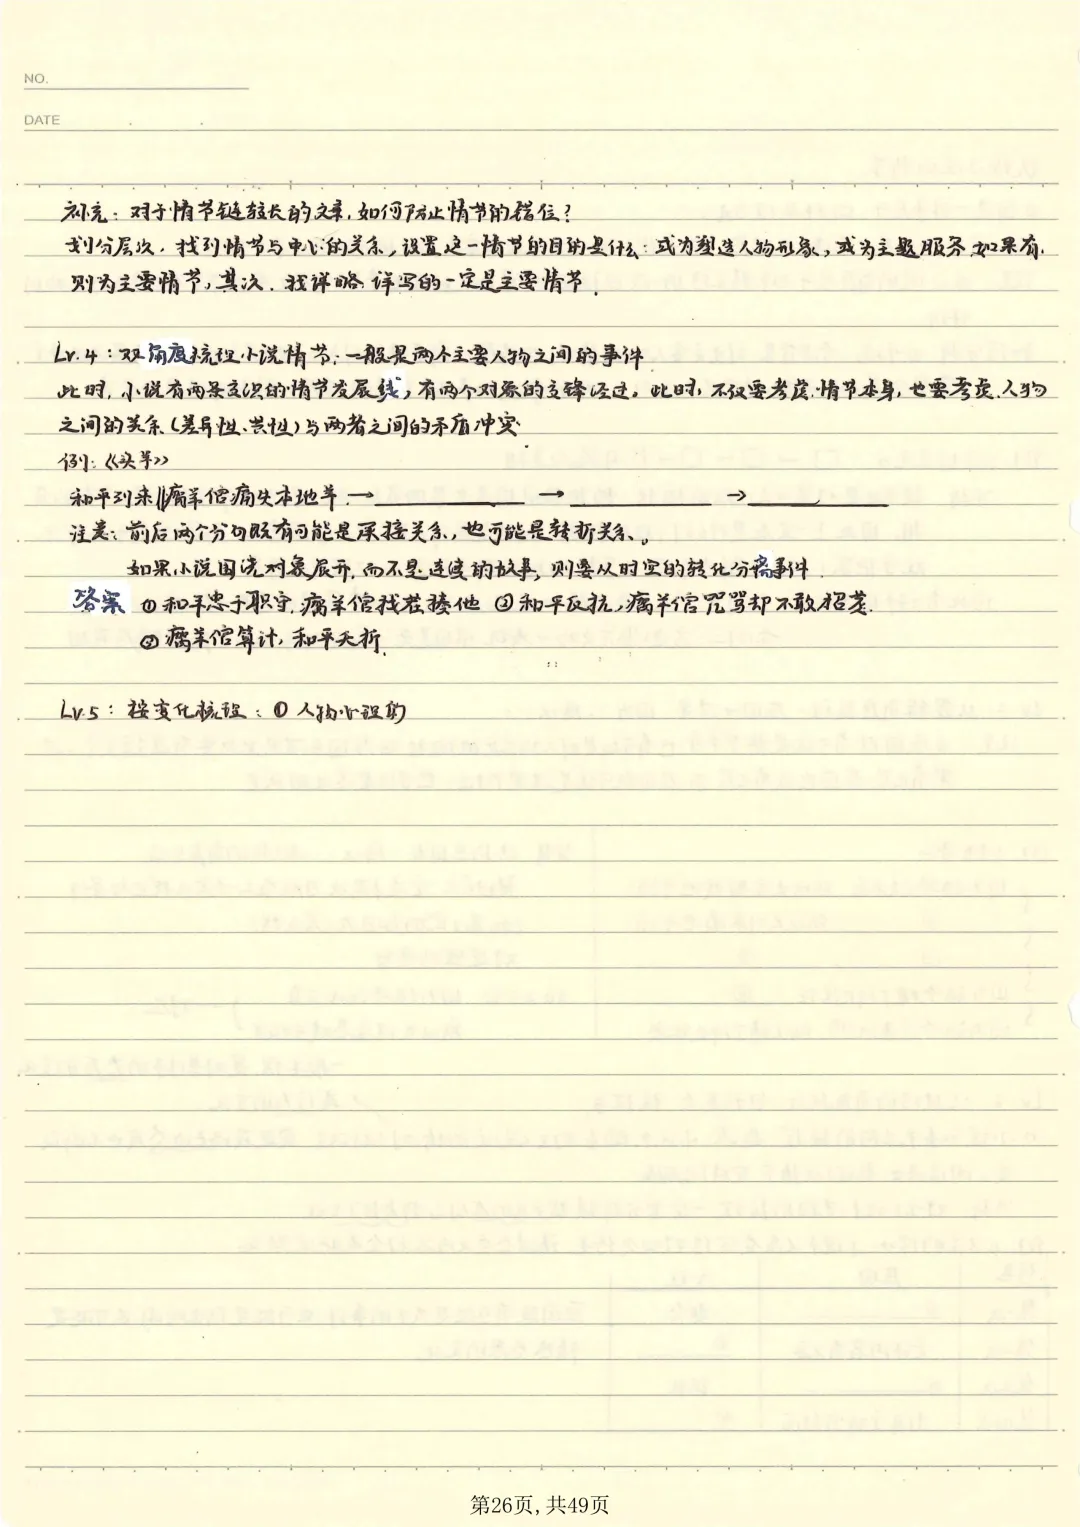 NO.
DATE
补充：对于情节链较长的文章，如何防止情节的错位？
划分层次，找到情节与中心的关系，设置这一情节的目的是什么：或为塑造人物形象，或为主题服务，如果有，
则为主要情节，其次，找详略，详写的一定是主要情节．
Lv.4：双角度梳理小说情节：一般是两个主要人物之间的事件
此时，小说有两条交织的情节发展线，有两个对象的交锋经过。此时，不仅要考虑情节本身，也要考虑人物
之间的关系（差异性、共性）与两者之间的矛盾冲突
例：《头羊》
和平到来‖瘸羊倌痛失本地羊 → → →
注意：前后两个分句既有可能是承接关系，也可能是转折关系。
如果小说围绕对象展开，而不是连续的故事，则要从时空的转化分离事件．
答案 ①和平忠于职守，瘸羊倌找茬揍他 ②和平反抗，瘸羊倌咒骂却不敢招惹．
③瘸羊倌算计，和平夭折．
Lv.5：按变化梳理：① 人物心理的
第26页, 共49页